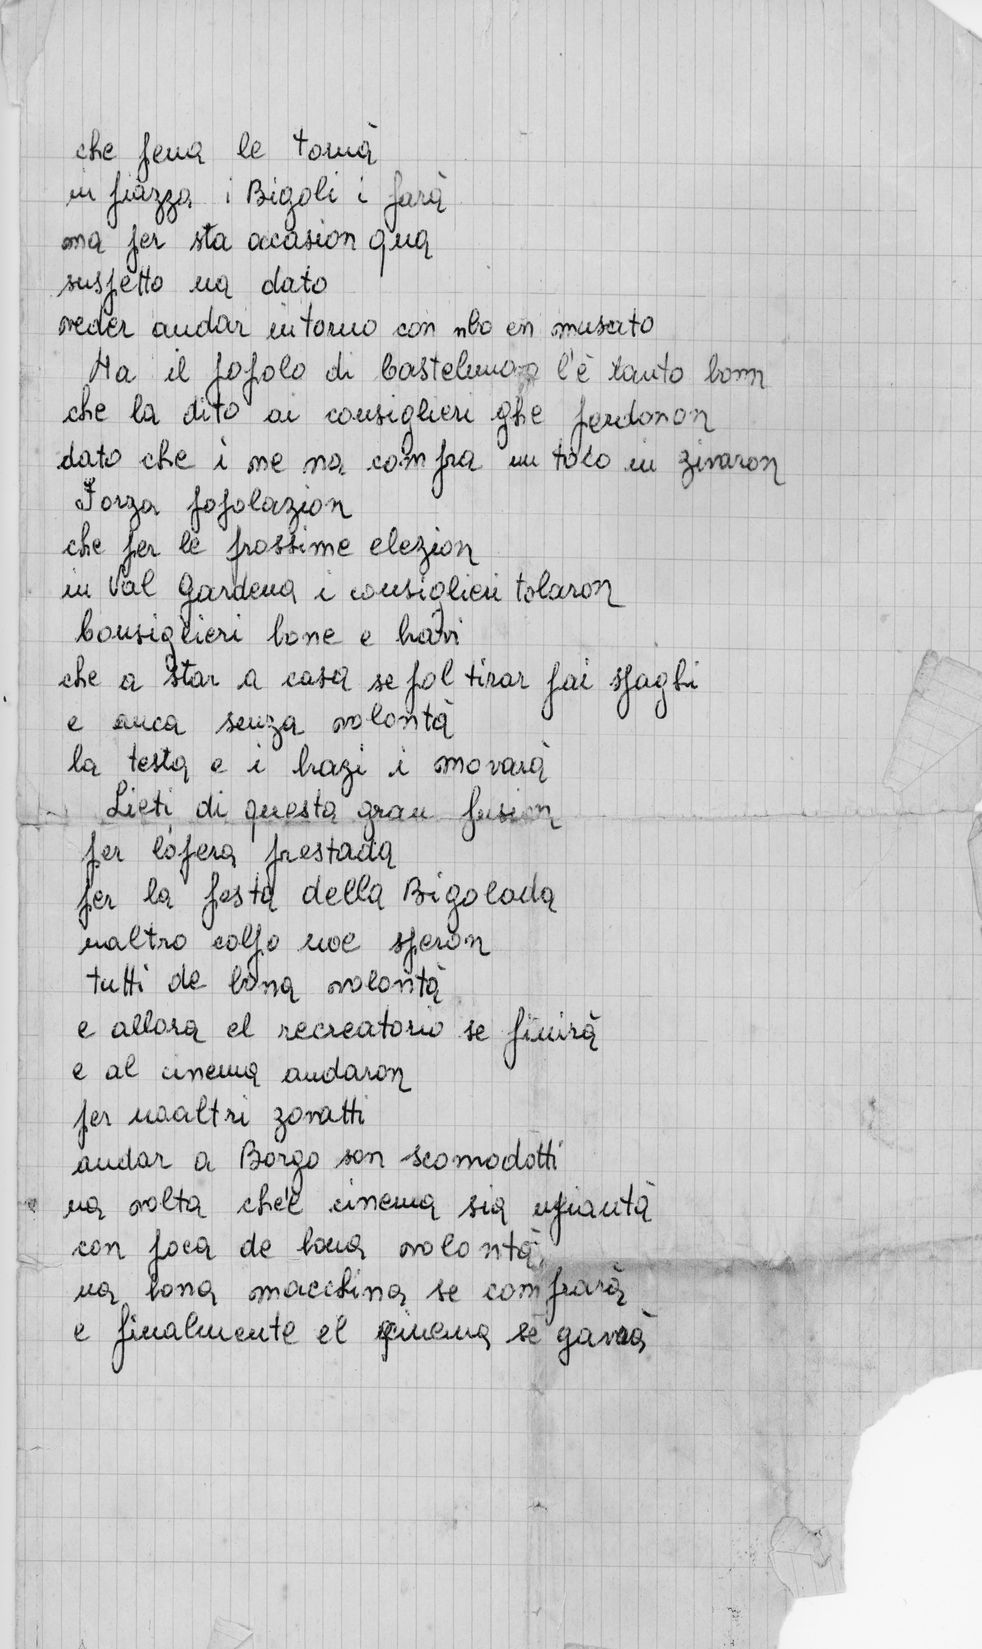 che pena le tornà
in piazza i Bigoli i farà
ma per sta ocasion qua
suspetto na dato
veder andar intorno con nbo en muscito
Ma il popolo di Castelnuovo l'è tanto bonn
che la dito ai consiglieri ghe perdonon
dato che i ne na compra un tòlo in zivaron
Forza popolazion
che per le prossime elezion
in Val Gardena i consiglieri tolaron
Consiglieri bone e bravi
che a star a casa se pol tirar pai spaghi
e anca senza volontà
la testa e i brazi i movarà
Lieti di questa gran fusion
per l'opera prestada
per la festa della Bigolada
naltro colpo noe speron
tutti de bona volontà
e allora el recreatorio se finirà
e al cinema andaron
per noaltri zovatti
andar a Borgo son scomodotti
na volta che'l cinema sia npiantà
con poca de bona volontà,
na bona macchina se comprarà
e finalmente el cinema se gavrà